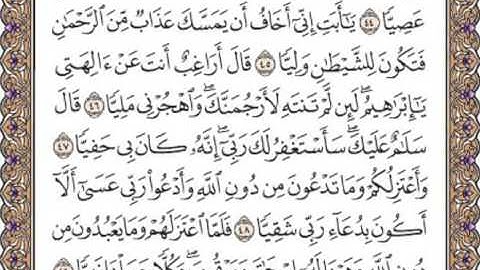 عَصِيًّا ٤٤ يَٰٓأَبَتِ إِنِّىٓ أَخَافُ أَن يَمَسَّكَ عَذَابٌ مِّنَ ٱلرَّحْمَٰنِ
فَتَكُونَ لِلشَّيْطَٰنِ وَلِيًّا ٤٥ قَالَ أَرَاغِبٌ أَنتَ عَنْ ءَالِهَتِى
يَٰٓإِبْرَٰهِيمُ ۖ لَئِن لَّمْ تَنتَهِ لَأَرْجُمَنَّكَ ۖ وَٱهْجُرْنِى مَلِيًّا ٤٦ قَالَ
سَلَٰمٌ عَلَيْكَ ۖ سَأَسْتَغْفِرُ لَكَ رَبِّىٓ ۖ إِنَّهُۥ كَانَ بِى حَفِيًّا ٤٧
وَأَعْتَزِلُكُمْ وَمَا تَدْعُونَ مِن دُونِ ٱللَّهِ وَأَدْعُوا۟ رَبِّى عَسَىٰٓ أَلَّآ
أَكُونَ بِدُعَآءِ رَبِّى شَقِيًّا ٤٨ فَلَمَّا ٱعْتَزَلَهُمْ وَمَا يَعْبُدُونَ مِن